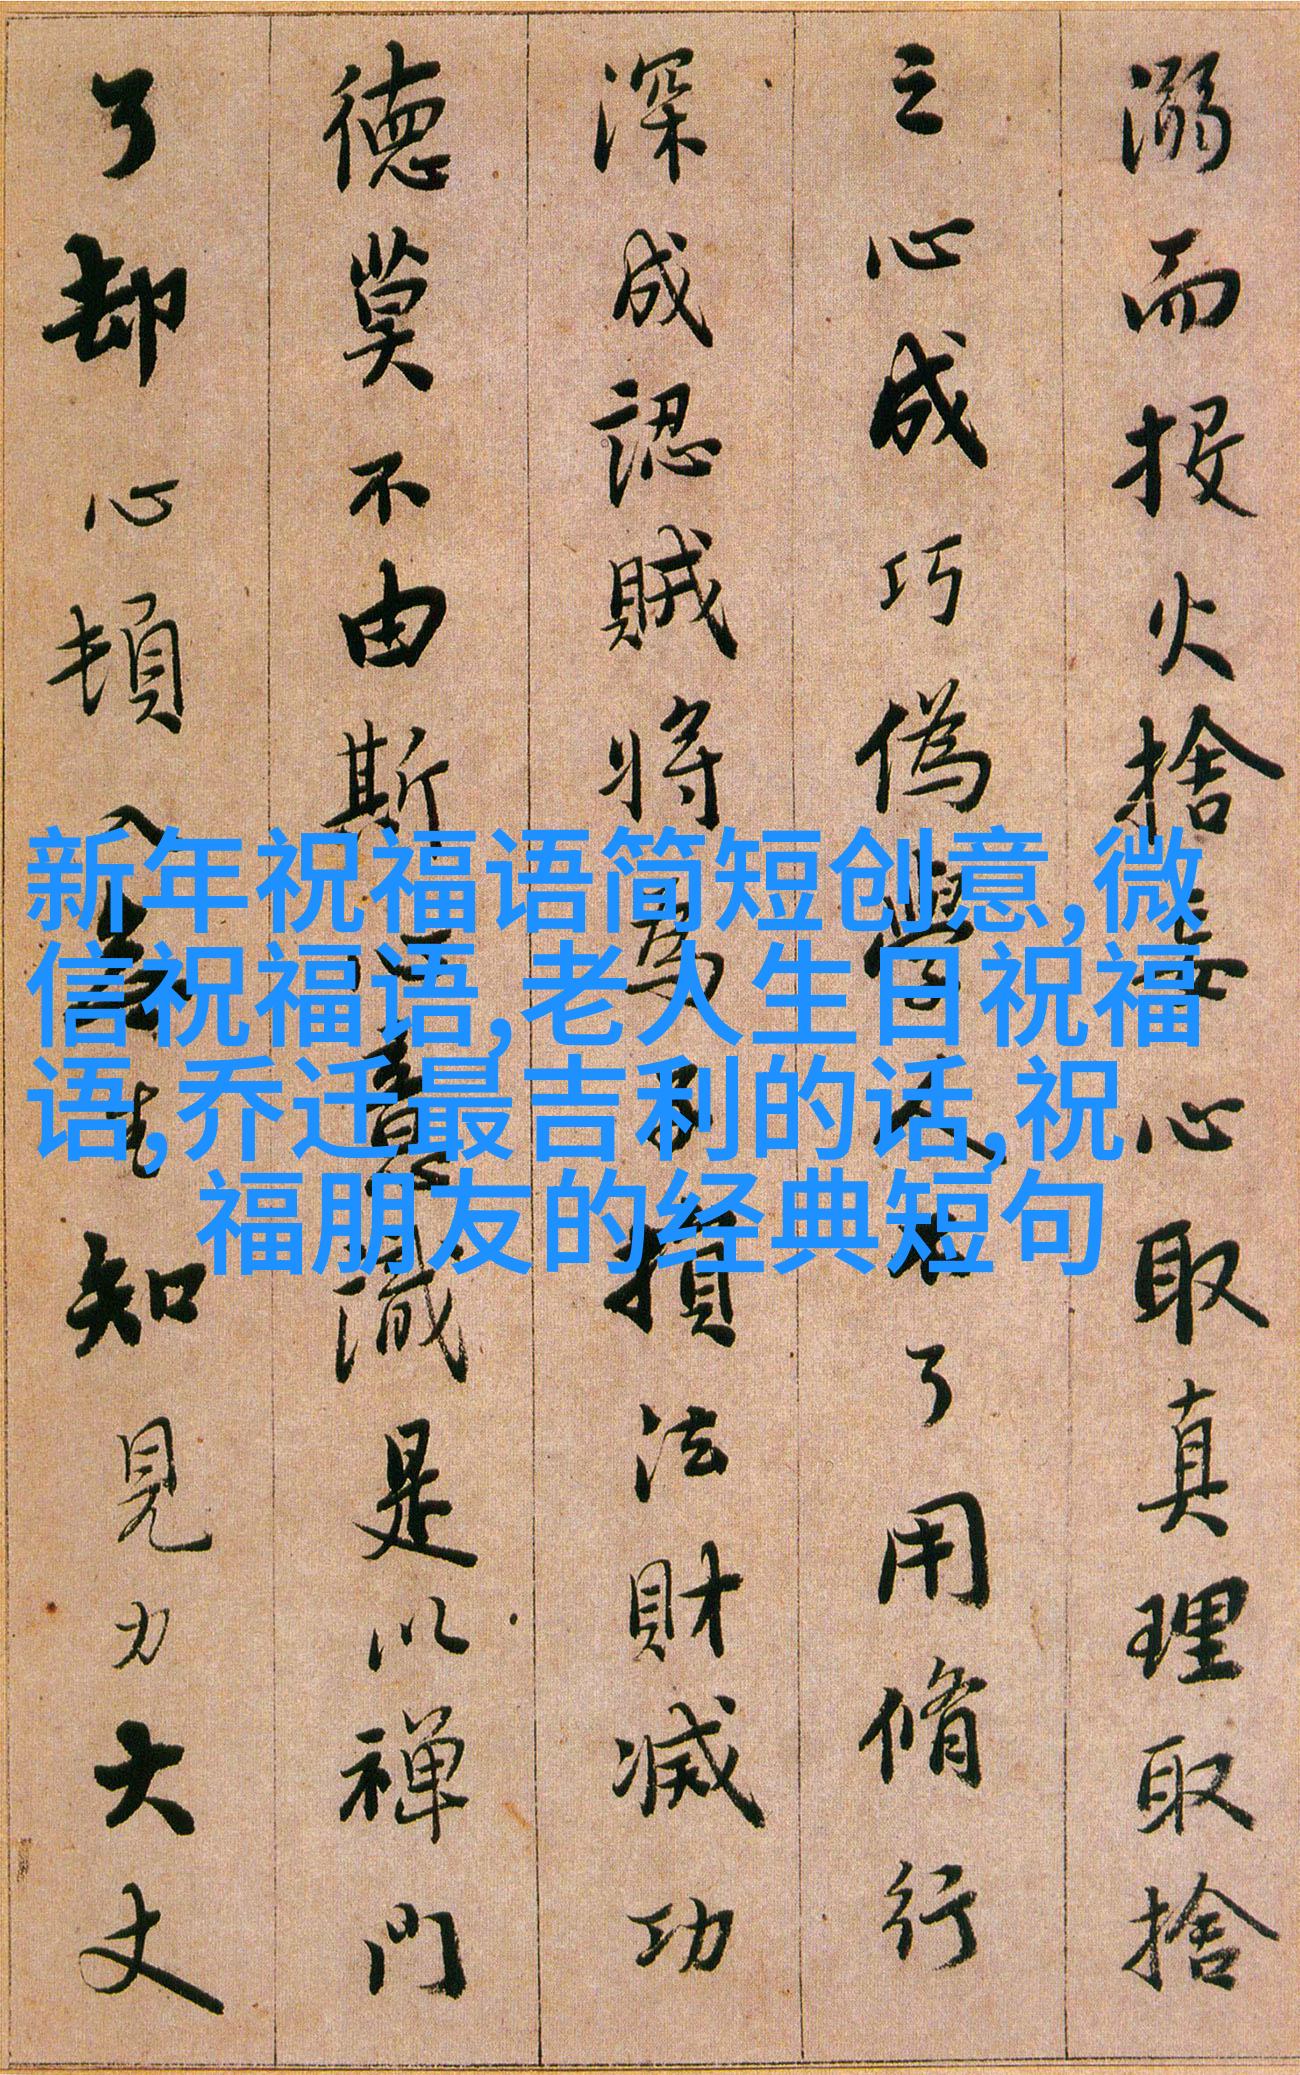 溺而投火捨妄心取真理取捨
之心成巧偽學人不了用脩行
深成認賊將為子損法財滅功
德莫不由斯心意識是以禪門
了却心頓入無生知見力大丈
新年祝福语简短创意,微
信祝福语,老人生日祝福
语,乔迁最吉利的话,祝
福朋友的经典短句